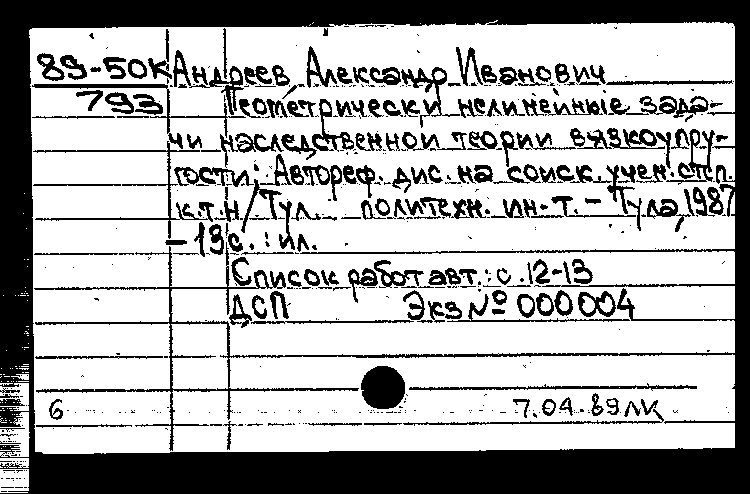 89-50К Андреев Александр Иванович
793 Геометрически нелинейные зада-
чи наследственной теории вязкоупру-
гости: Автореф. дис. на соиск. учен. степ.
к.т.н / Тул. политехн. ин-т. - Тула, 1987
- 13с. : ил.
Список работ авт.: с. 12-13
ДСП Экз № 000004
6 7.04.89лк